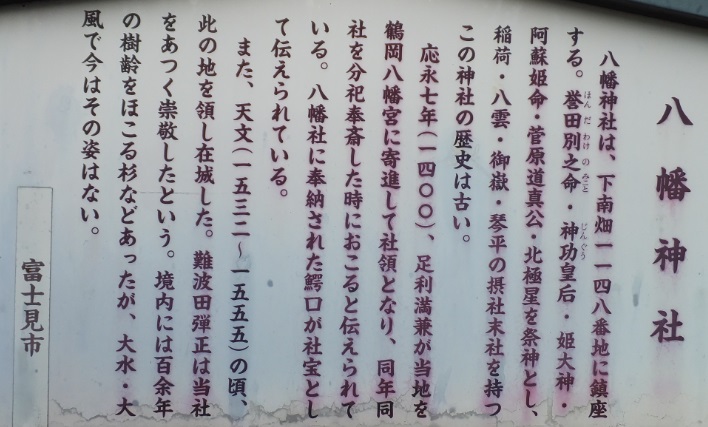 八幡神社
八幡神社は、下南畑一一四八番地に鎮座
する。誉田別之命・神功皇后・姫大神・
ほんだわけのみこと
じんぐう
阿蘇姫命・菅原道真公・北極星を祭神とし、
稲荷・八雲・御嶽・琴平の摂社末社を持つ
この神社の歴史は古い。
応永七年(一四〇〇)、足利満兼が当地を
鶴岡八幡宮に寄進して社領となり、同年同
社を分祀奉斎した時におこると伝えられて
いる。八幡社に奉納された鰐口が社宝とし
て伝えられている。
また、天文(一五三二〜一五五五)の頃、
此の地を領し在城した。難波田弾正は当社
をあつく崇敬したという。境内には百余年
の樹齢をほこる杉などあったが、大水・大
風で今はその姿はない。
富士見市